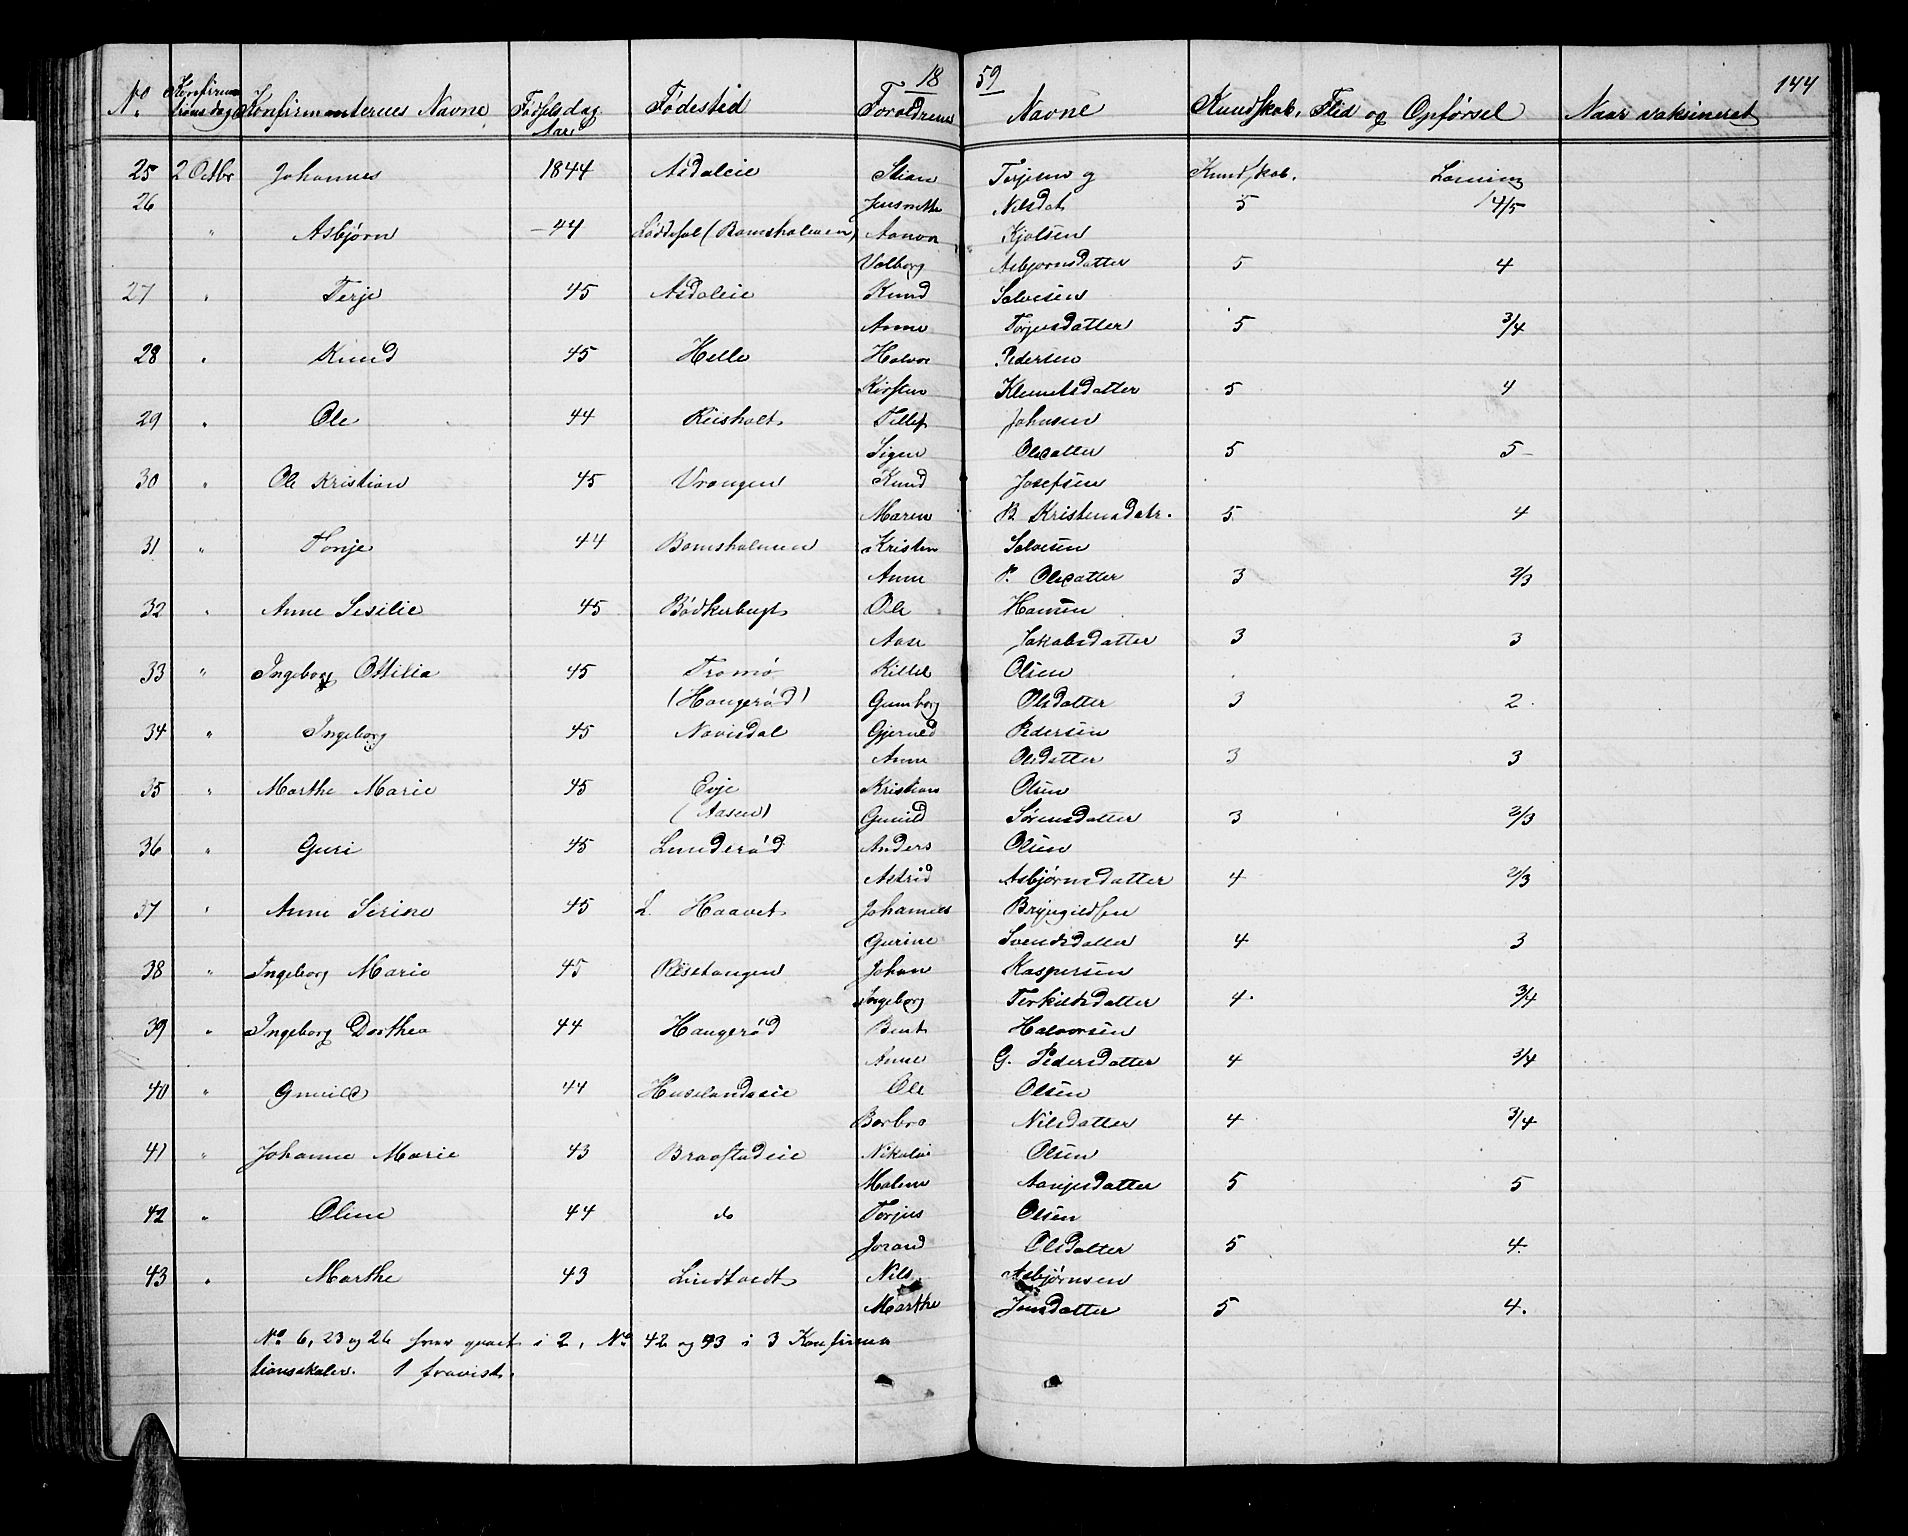 18 59
144
No. Konfirmationsdage Konfirmanternes Navne Fødselsdag Aar Fødested Forældrenes Navne Kundskab, Flid og Opførsel Naar vaksineret
25 2 Octbr Johannes 1844 Asdaleie Stian Terjesen og Kundskab.
26 Nilsdat 5 4/5
" Asbjørn -44 (Bomsholmen) Aanon Kjølsen
Valborg Asbjørnsdatter 5 4
27 " Terje 45 Asdaleie Knud Salvesen
Anne Torjusdatter 5 3/4
28 " Knud 45 Helle Halvor Pedersen
Kirsten Klemetsdatter 5 4
29 " Ole 44 Riisholt Tellef Johnsen
Sigen Olsdatter 5 5-
30 " Ole Kristian 45 Vrangen Knud Josefsen
Maren B. Kristensdatr. 5 4
31 " Tonje 44 Bomsholmen Kristen Salvesen
Anne P. Olsdatter 3 2/3
32 " Anne Sesilie 45 Bødkerbugt Ole Hansen
Aase Jakobsdatter 3 3
33 " Ingeborg Ottilia 45 Tromø Kittel Olsen
(Haugerød) Gunborg Olsdatter 3 2.
34 " Ingeborg 45 Navisdal Gjeruld Pedersen
Anne Olsdatter 3 3
35 " Marthe Marie 45 Evje Kristian Olsen
(Aasen) Gunild Sørensdatter 3 2/3
36 " Guri 45 Lunderød Anders Olsen
Astrid Asbjørnsdatter 4 2/3
37 " Anne Serine 45 L. Haavet Johannes Bryngildsen
Gurine Svendsdatter 4 3
38 " Ingeborg Marie 45 Johan Kaspersen
Ingeborg Terkildsdatter 4. 3/4
39 " Ingeborg Dorthea 44 Haugerød Bent Halvorsen
Anne G. Pedersdatter 4 3/4
40 " Gunild 44 Huslandseie Ole Olsen
Barbro Nilsdatter 4 3/4
41 " Johanne Marie 43 Braastadeie Nikolai Olsen
Malene Aanjesdatter 5 5
42 " Oline 44 do Torjus Olsen
Jorand Olsdatter 5 4.
43 " Marthe 43 Lindtveit Nils Asbjørnsen
Marthe Jensdatter 5 4.
No 6, 23 og 26 have gaaet i 2, No 42 og 43 i 3 Konfirma
tionsskoler. 1 fravist.